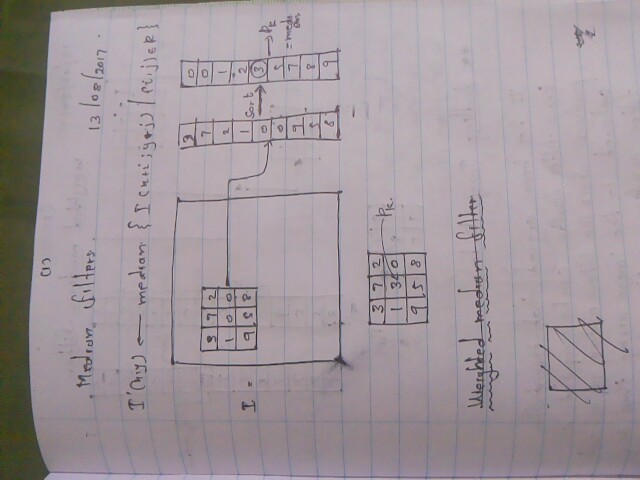 (1)
Median filters. 13/08/2017.
I'(x,y) ← median { I(x+i, y+j) | (i,j) ∈ R }
I =
3 7 2
1 0 0
9 5 8
3 7 2 1 0 0 9 5 8
sort
0 0 1 2 3 5 7 8 9
→ Pk = median
3 7 2
1 3 0
9 5 8
Pk
Weighted median filter
2